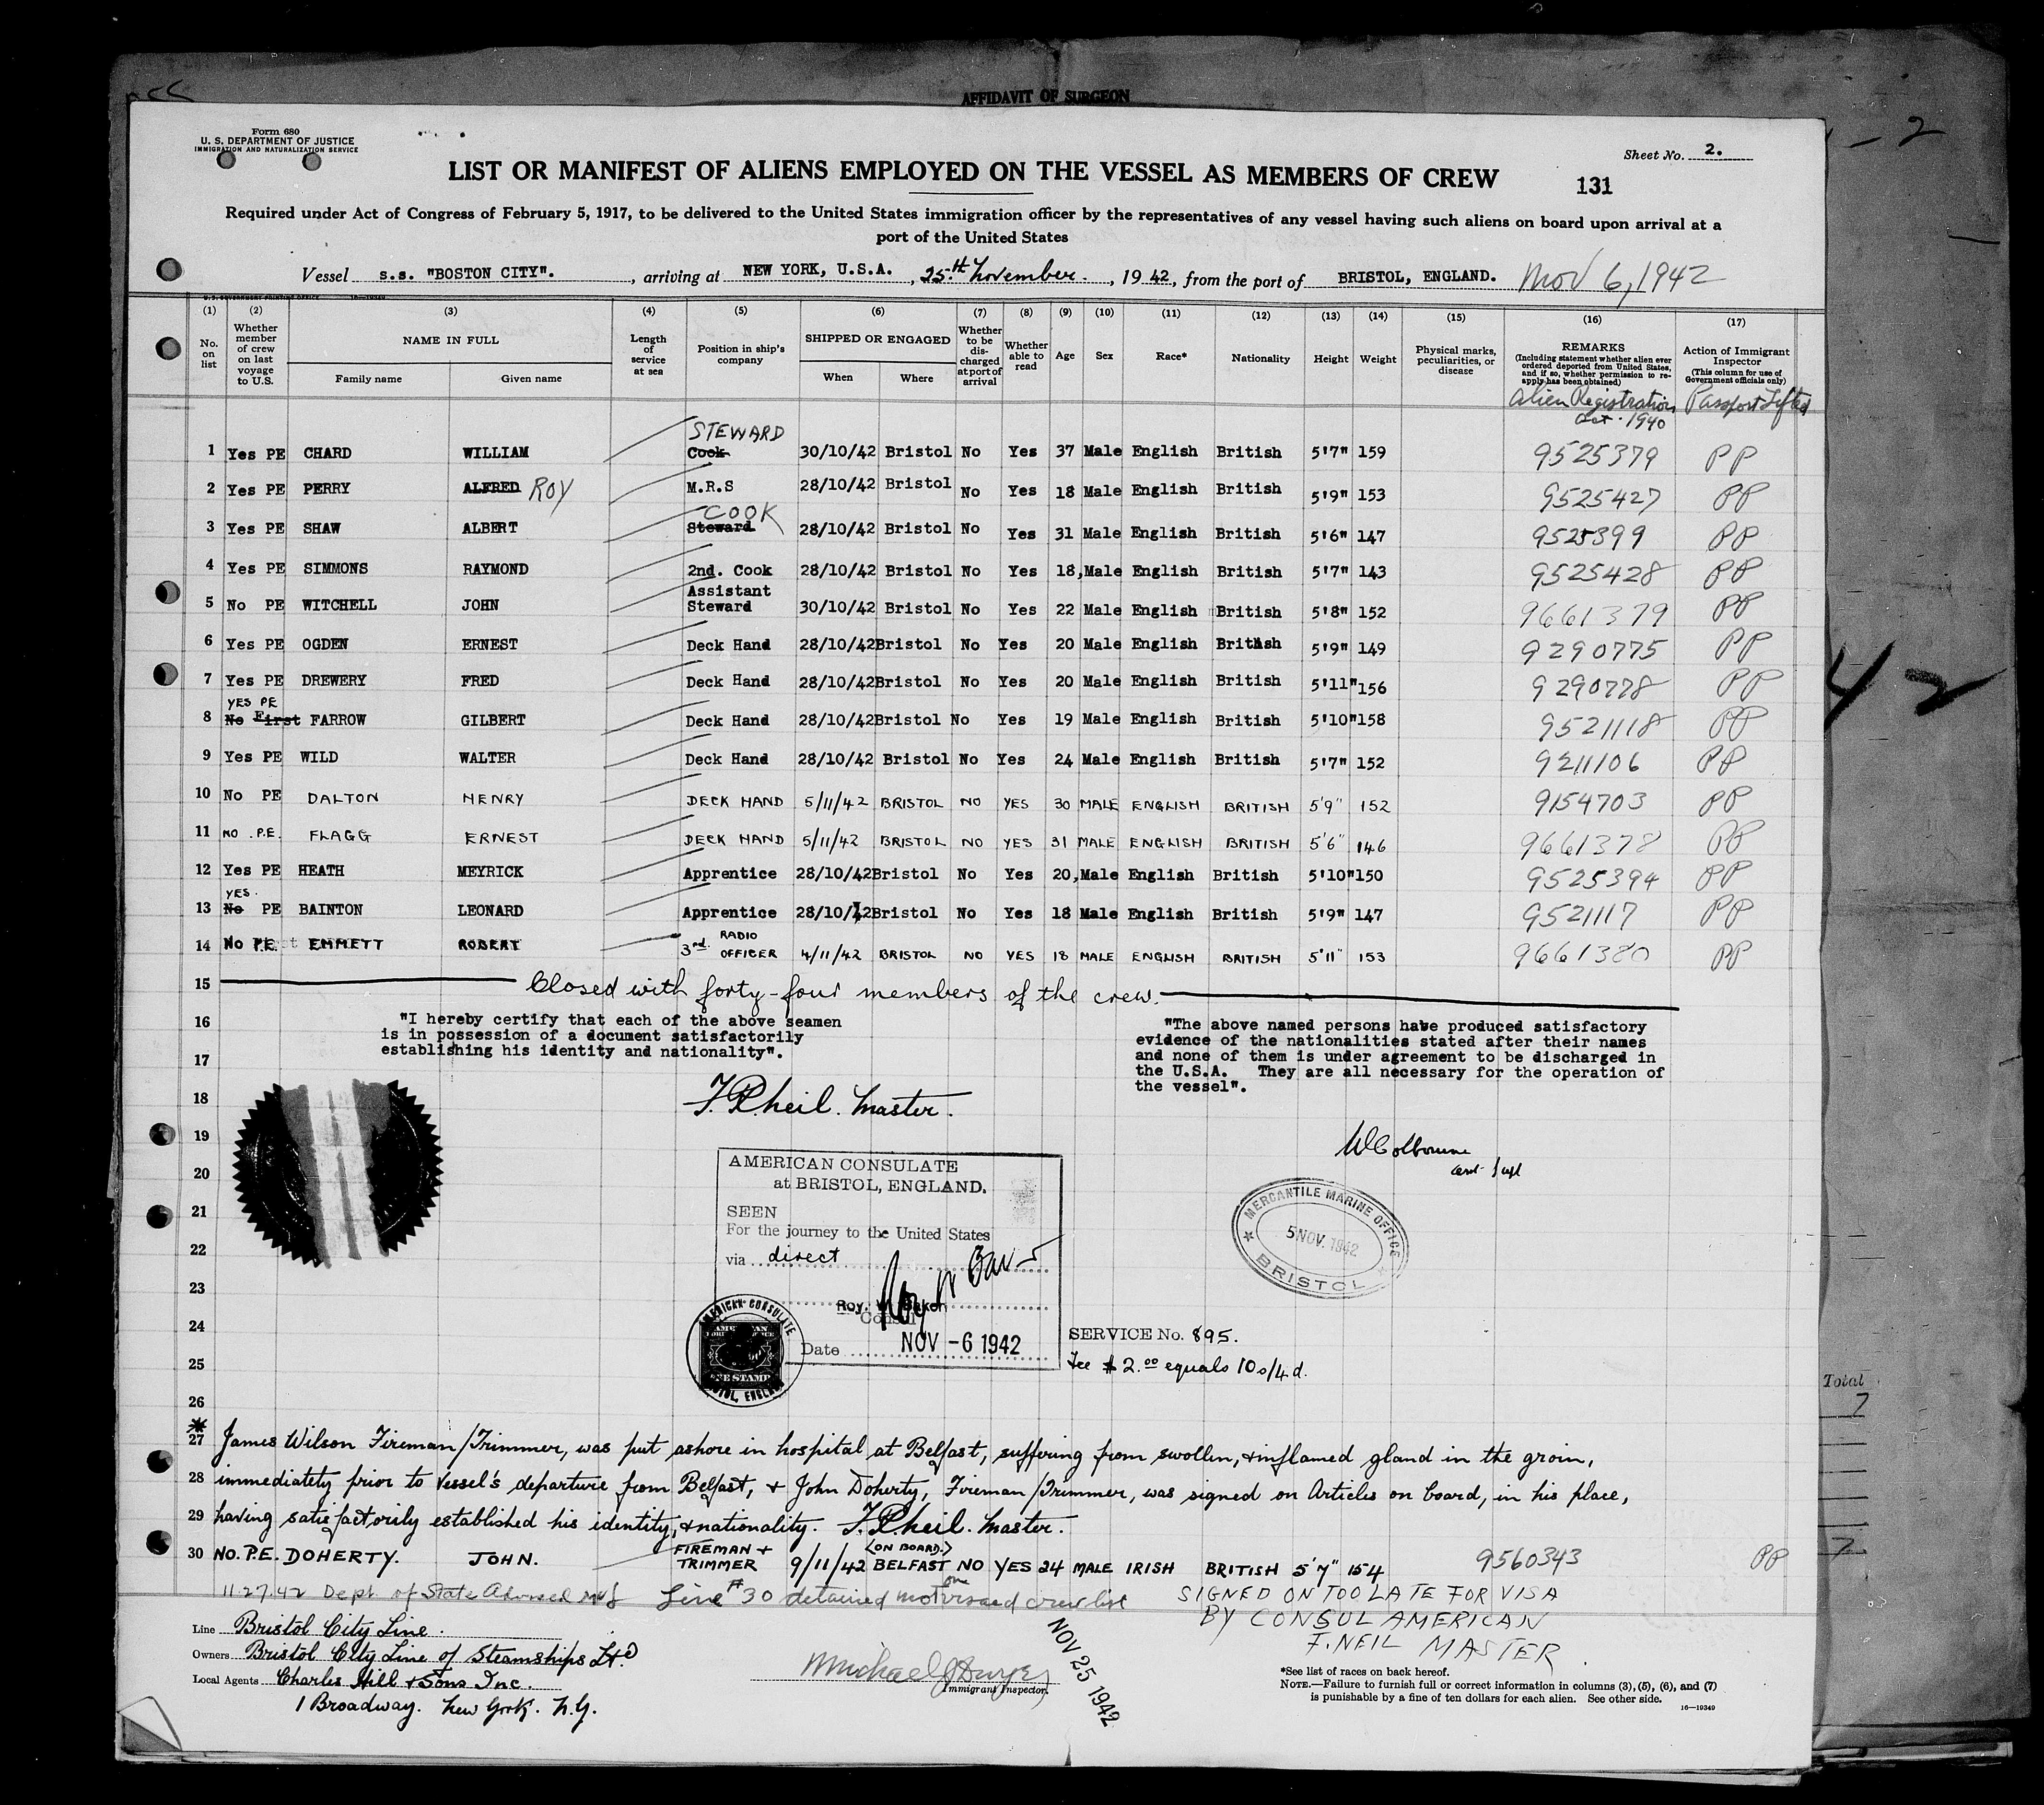 AFFIDAVIT OF SURGEON
Form 680
U. S. DEPARTMENT OF JUSTICE
IMMIGRATION AND NATURALIZATION SERVICE
Sheet No. 2.
LIST OR MANIFEST OF ALIENS EMPLOYED ON THE VESSEL AS MEMBERS OF CREW 131
Required under Act of Congress of February 5, 1917, to be delivered to the United States immigration officer by the representatives of any vessel having such aliens on board upon arrival at a
port of the United States
Vessel s.s. "BOSTON CITY". , arriving at NEW YORK, U.S.A. , 25th November. , 1942, from the port of BRISTOL, ENGLAND. Nov 6, 1942
U. S. GOVERNMENT PRINTING OFFICE 16—19349
(1) (2) (3) (4) (5) (6) (7) (8) (9) (10) (11) (12) (13) (14) (15) (16) (17)
No. on list
Whether member of crew on last voyage to U.S.
NAME IN FULL
Family name
Given name
Length of service at sea
Position in ship's company
SHIPPED OR ENGAGED
When
Where
Whether to be discharged at port of arrival
Whether able to read
Age
Sex
Race*
Nationality
Height
Weight
Physical marks, peculiarities, or disease
REMARKS
(Including statement whether alien ever ordered deported from United States, and if so, whether permission to reapply has been obtained)
Alien Registration Act. 1940
Action of Immigrant Inspector
(This column for use of Government officials only)
Passport Lifted
STEWARD
1 Yes PE CHARD WILLIAM Cook 30/10/42 Bristol No Yes 37 Male English British 5'7" 159 9525379 PP
2 Yes PE PERRY ALFRED ROY M.R.S 28/10/42 Bristol No Yes 18 Male English British 5'9" 153 9525427 PP
COOK
3 Yes PE SHAW ALBERT Steward 28/10/42 Bristol No Yes 31 Male English British 5'6" 147 9525399 PP
4 Yes PE SIMMONS RAYMOND 2nd. Cook 28/10/42 Bristol No Yes 18, Male English British 5'7" 143 9525428 PP
Assistant
5 No PE WITCHELL JOHN Steward 30/10/42 Bristol No Yes 22 Male English British 5'8" 152 9661379 PP
6 Yes PE OGDEN ERNEST Deck Hand 28/10/42 Bristol No Yes 20 Male English British 5'9" 149 9290775 PP
7 Yes PE DREWERY FRED Deck Hand 28/10/42 Bristol No Yes 20 Male English British 5'11" 156 9290778 PP
YES PE
8 No First FARROW GILBERT Deck Hand 28/10/42 Bristol No Yes 19 Male English British 5'10" 158 9521118 PP
9 Yes PE WILD WALTER Deck Hand 28/10/42 Bristol No Yes 24 Male English British 5'7" 152 9211106 PP
10 No PE DALTON HENRY DECK HAND 5/11/42 BRISTOL NO YES 30 MALE ENGLISH BRITISH 5'9" 152 9154703 PP
11 NO .P.E. FLAGG ERNEST DECK HAND 5/11/42 BRISTOL NO YES 31 MALE ENGLISH BRITISH 5'6" 146 9661378 PP
12 Yes PE HEATH MEYRICK Apprentice 28/10/42 Bristol No Yes 20, Male English British 5'10" 150 9525394 PP
YES.
13 No PE BAINTON LEONARD Apprentice 28/10/42 Bristol No Yes 18 Male English British 5'9" 147 9521117 PP
14 No P.E. EMMETT ROBERT 3rd. RADIO OFFICER 4/11/42 BRISTOL NO YES 18 MALE ENGLISH BRITISH 5'11" 153 9661380 PP
15 Closed with forty-four members of the crew.
16 "I hereby certify that each of the above seamen
is in possession of a document satisfactorily
establishing his identity and nationality".
"The above named persons have produced satisfactory
evidence of the nationalities stated after their names
and none of them is under agreement to be discharged in
the U.S.A. They are all necessary for the operation of
the vessel".
17
18 Master.
19
W Colbourne
20
21
22
23
24
25
26
AMERICAN CONSULATE
at BRISTOL, ENGLAND.
SEEN
For the journey to the United States
via direct
Roy. W. Baker
Consul
Date NOV -6 1942
AMERICAN CONSULATE
BRISTOL, ENGLAND
MERCANTILE MARINE OFFICE
5 NOV. 1942
BRISTOL
SERVICE No. 895.
Fee $ 2.00 equals 10s/4d.
*
27 James Wilson Fireman/Trimmer, was put ashore in hospital at Belfast, suffering from swollen, & inflamed gland in the groin,
28 immediately prior to Vessel's departure from Belfast, & John Doherty, Fireman/Trimmer, was signed on Articles on board, in his place,
29 having satisfactorily established his identity, & nationality. Master.
30 NO. P.E. DOHERTY. JOHN. FIREMAN & TRIMMER 9/11/42 (ON BOARD.) BELFAST NO YES 24 MALE IRISH BRITISH 5'7" 154 9560343 PP
11.27.42 Dept of State Advised Line #30 detained not on visaed crew list
SIGNED ON TOO LATE FOR VISA
BY CONSUL AMERICAN
F. NEIL MASTER.
Line Bristol City Line.
Owners Bristol City Line of Steamships Ltd
Local Agents Charles Hill & Sons Inc.
1 Broadway. New York. N.Y.
Immigrant Inspector.
NOV 25 1942
*See list of races on back hereof.
NOTE.—Failure to furnish full or correct information in columns (3), (5), (6), and (7)
is punishable by a fine of ten dollars for each alien. See other side.
16—19349
42
Total
7
7